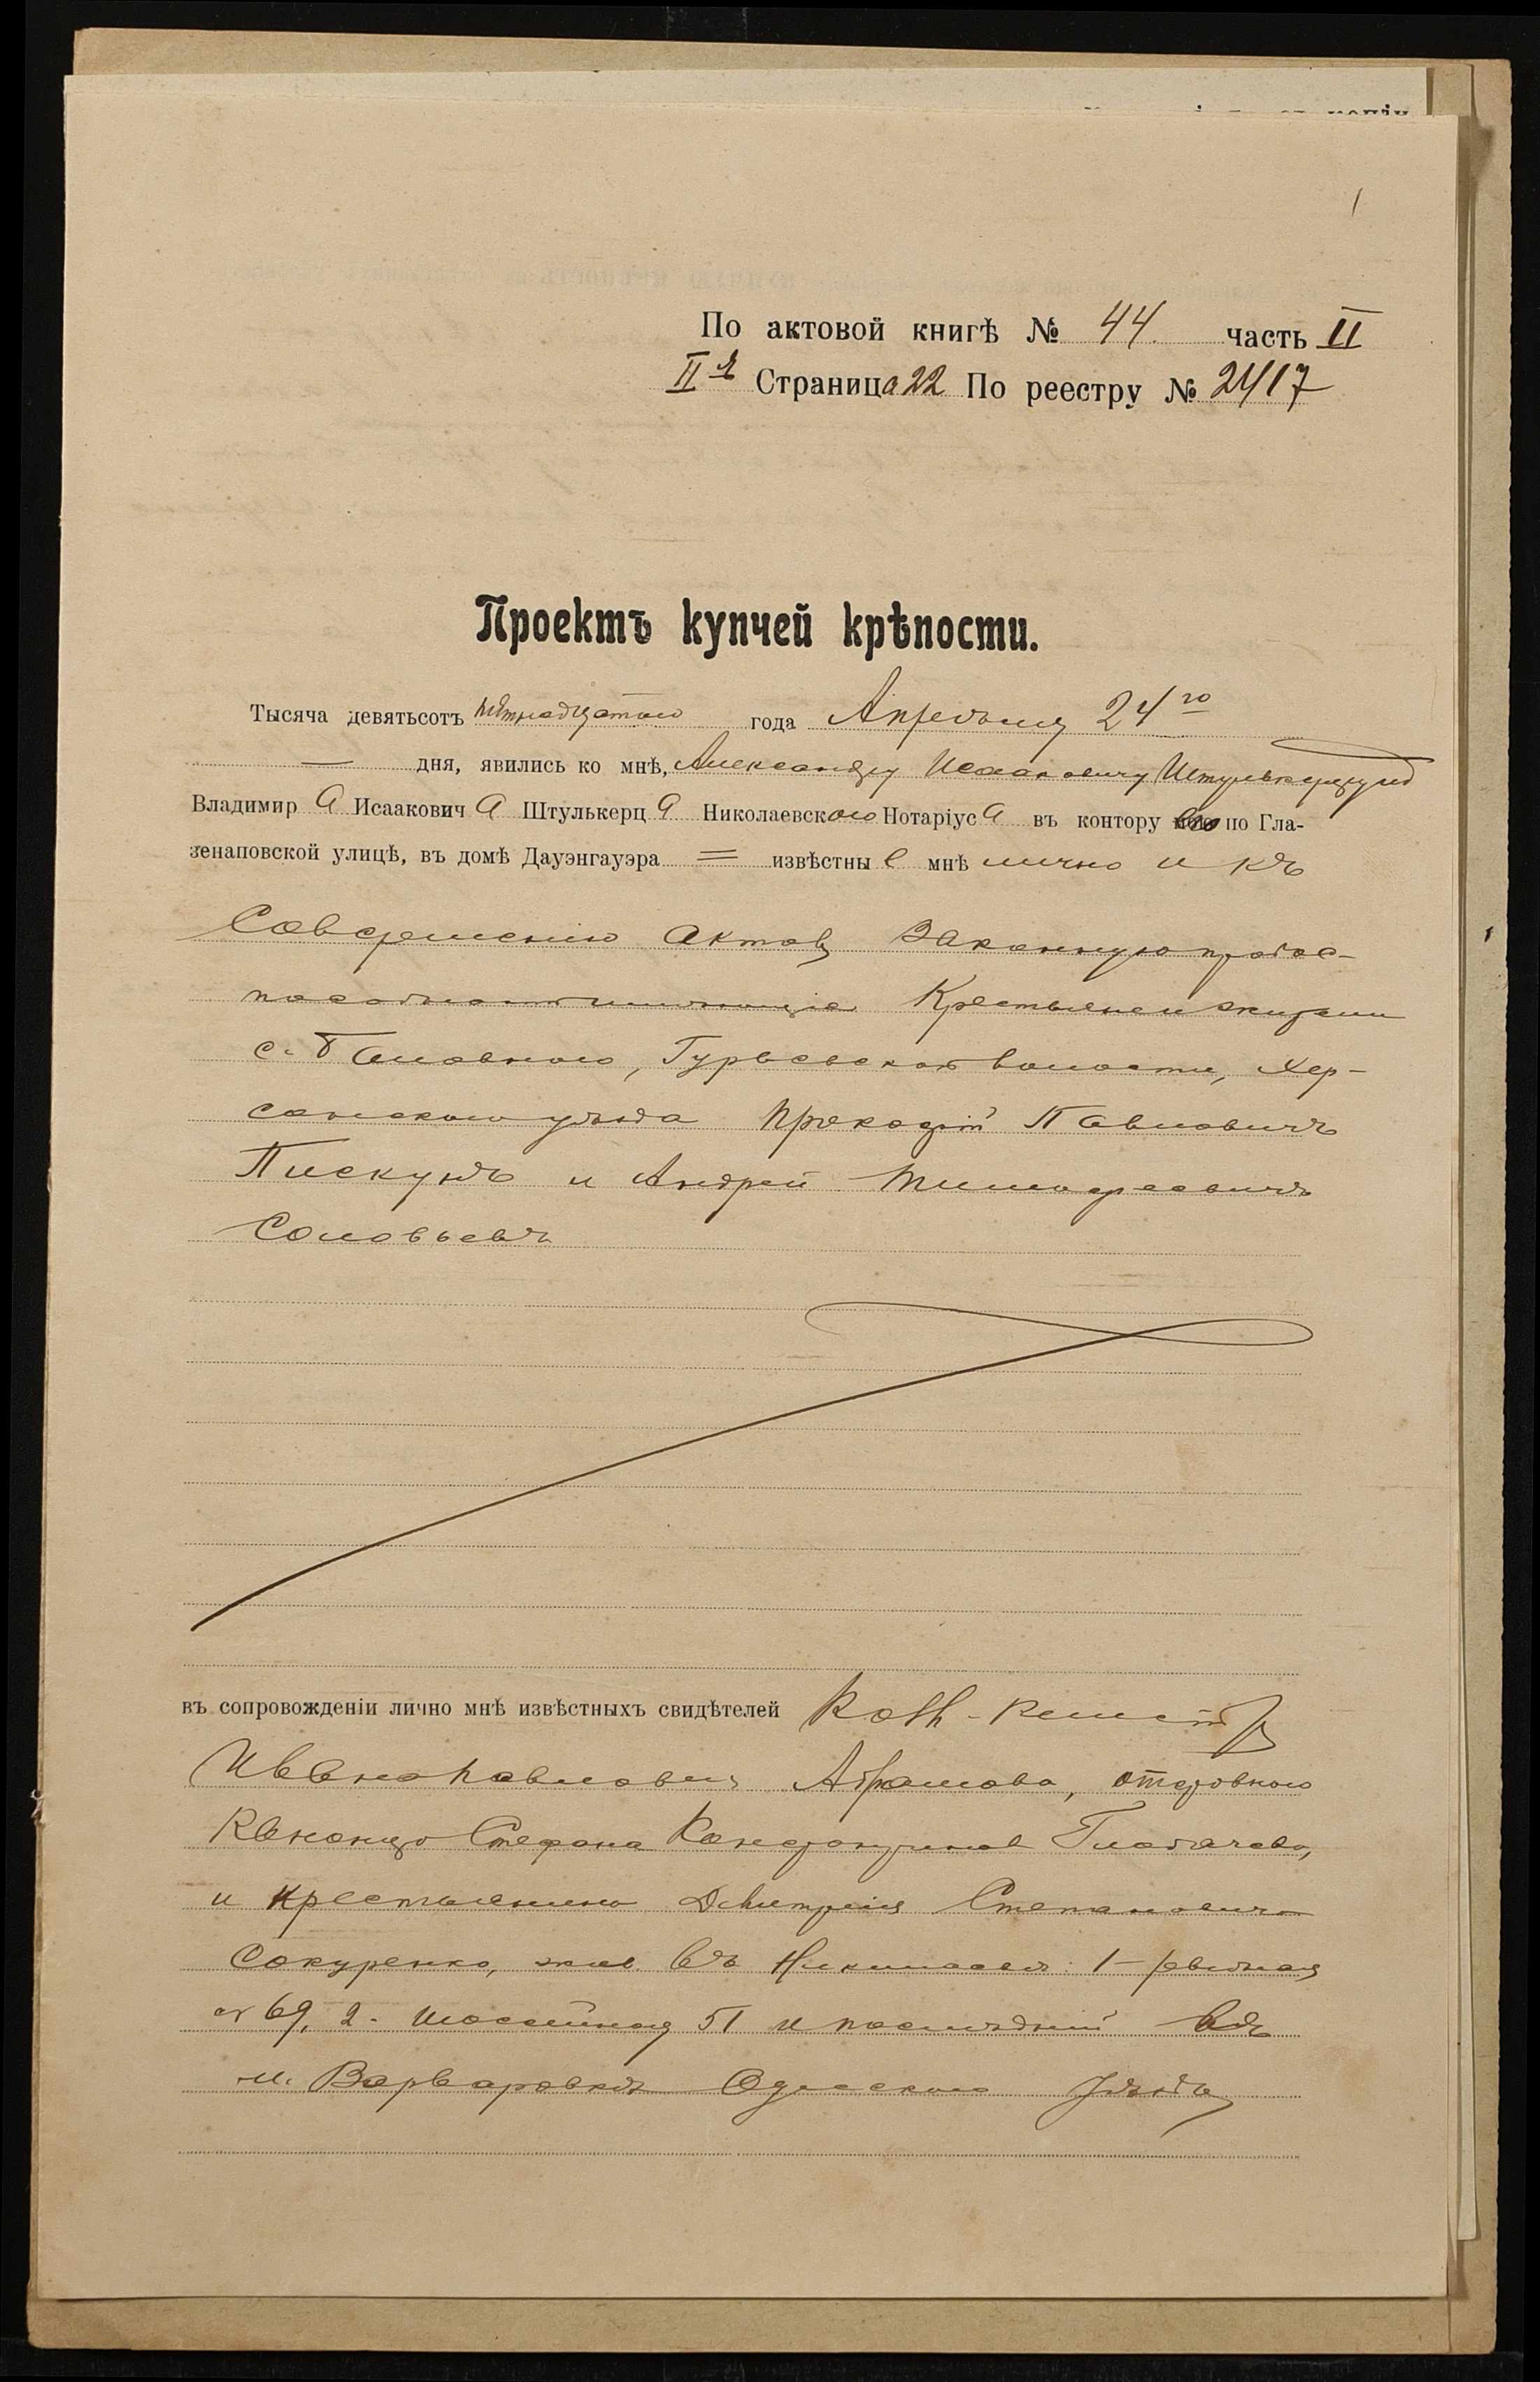 1
По актовой книгѣ № 44. часть II
IIя Страница 22 По реестру № 2417
Проектъ купчей крѣпости.
Тысяча девятьсотъ пятнадцатаго года Апрѣля 24го
— дня, явились ко мнѣ, Александру Исааковичу Штулькерцу
Владимира Исааковича Штулькерца Николаевскаго Нотаріуса въ контору его по Гла-
зенаповской улицѣ, въ домѣ Дауэнгауэра = извѣстные мнѣ лично и къ
совершенію актовъ законную правос-
Крестьяне
с. Баловнаго, Гурьевской волости, Хер-
сонскаго уѣзда Аркадій Павловичъ
Пискунъ и Андрей Тимофеевичъ
Соловьевъ
въ сопровожденіи лично мнѣ извѣстныхъ свидѣтелей
Ивана Павловича Абрамова, отставного
Стефана Глобачева,
и крестьянина Дмитрія Степановича
Сокуренко, жив. въ Николаевѣ: 1-
69, 2- 51 и послѣдній въ
м. Варваровкѣ Одесскаго уѣзда